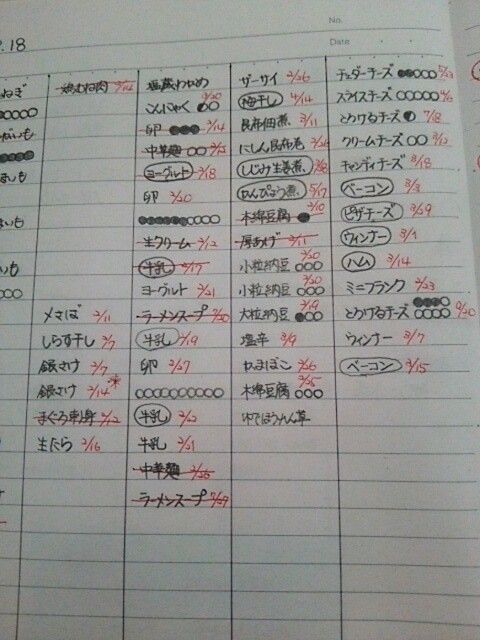 No.
Date
.18
ねぎ
いも
鶏むね肉 2/14
メさば 2/11
しらす干し 2/7
銀さけ 2/7
銀さけ 2/14
まぐろ刺身 2/12
生たら 2/16
塩蔵わかめ
こんにゃく 3/20
卵 2/14
中華麺
ヨーグルト 2/18
卵 2/20
生クリーム 2/12
牛乳 2/17
ヨーグルト 2/21
ラーメンスープ
牛乳 2/19
卵 2/27
牛乳 2/22
牛乳 2/21
中華麺 2/25
ラーメンスープ 7/29
ザーサイ 2/26
梅干し 4/14
昆布佃煮 3/11
にしん昆布巻
しじみ生姜煮
かんぴょう煮 5/17
木綿豆腐 2/10
厚あげ 2/11
小粒納豆 2/20
小粒納豆 2/20
大粒納豆 2/19
塩辛 3/9
かまぼこ 2/26
木綿豆腐 2/25
ゆでほうれん草
チェダーチーズ
スライスチーズ
とろけるチーズ 7/18
クリームチーズ
キャンディチーズ 8/18
ベーコン 3/3
ピザチーズ
ウィンナー 3/1
ハム 3/14
ミニフランク 2/23
とろけるチーズ
ウィンナー 3/7
ベーコン 3/15